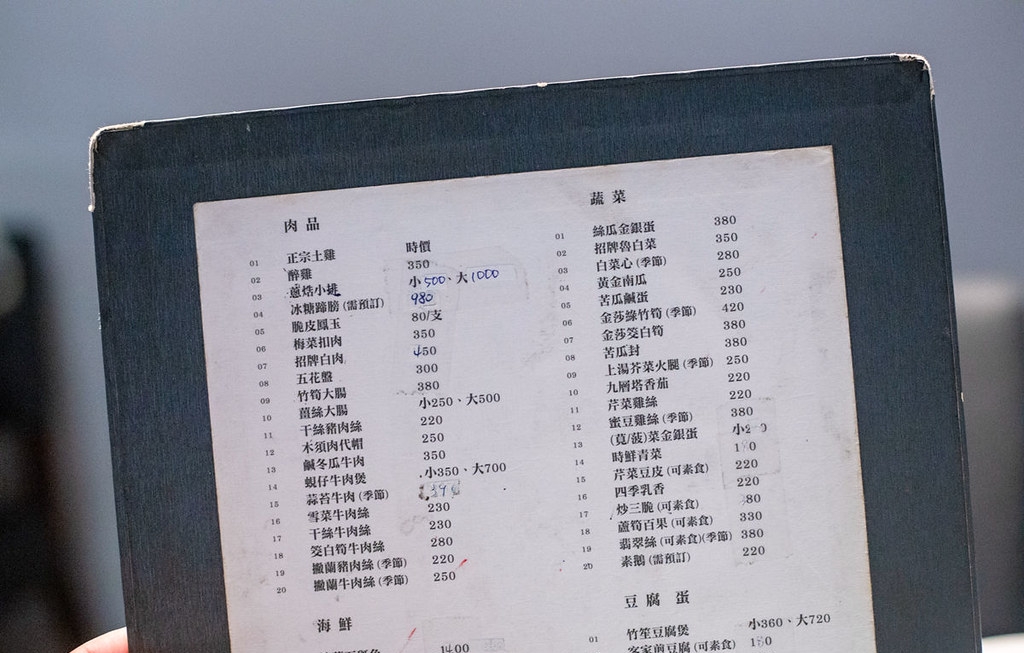 肉品
01 正宗土雞 時價
02 醉雞 350
03 小排 小500、大1000
04 冰糖蹄膀(需預訂) 980
05 脆皮鳳玉 80/支
06 梅菜扣肉 350
07 招牌白肉 450
08 五花盤 300
09 竹筍大腸 380
10 薑絲大腸 小250、大500
11 干絲豬肉絲 220
12 木須肉代帽 250
13 鹹冬瓜牛肉 350
14 蜆仔牛肉煲 小350、大700
15 蒜苔牛肉(季節)
16 雪菜牛肉絲 230
17 干絲牛肉絲 230
18 筊白筍牛肉絲 280
19 撇蘭豬肉絲(季節) 220
20 撇蘭牛肉絲(季節) 250
海鮮
1400
蔬菜
01 絲瓜金銀蛋 380
02 招牌魯白菜 350
03 白菜心(季節) 280
04 黃金南瓜 250
05 苦瓜鹹蛋 230
06 金莎綠竹筍(季節) 420
07 金莎筊白筍 380
08 苦瓜封
09 上湯芥菜火腿(季節) 250
10 九層塔香茄 220
11 芹菜雞絲 220
12 蜜豆雞絲(季節) 380
13 (莧/菠)菜金銀蛋 小
14 時鮮青菜
15 芹菜豆皮(可素食) 220
16 四季乳香 220
17 炒三脆(可素食) 80
18 蘆筍百果(可素食) 330
19 翡翠絲(可素食)(季節) 380
20 素鵝(需預訂) 220
豆腐蛋
01 竹笙豆腐煲 小360、大720
客家煎豆腐(可素食)